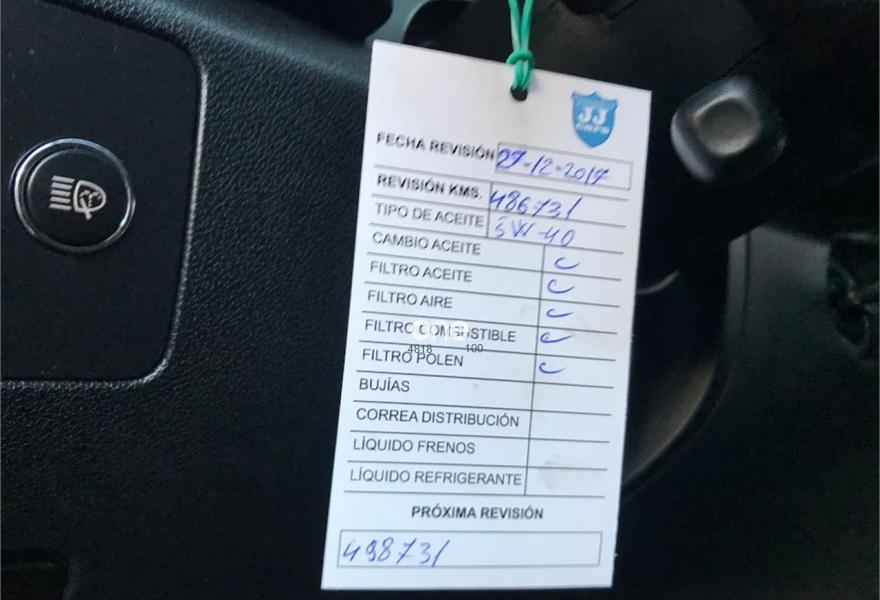 JJ
CARS
FECHA REVISIÓN 27-12-2017
REVISIÓN KMS. 486731
TIPO DE ACEITE 5W-40
CAMBIO ACEITE
FILTRO ACEITE
FILTRO AIRE
FILTRO COMBUSTIBLE
one
4818 100
FILTRO POLEN
BUJÍAS
CORREA DISTRIBUCIÓN
LÍQUIDO FRENOS
LÍQUIDO REFRIGERANTE
PRÓXIMA REVISIÓN
498731